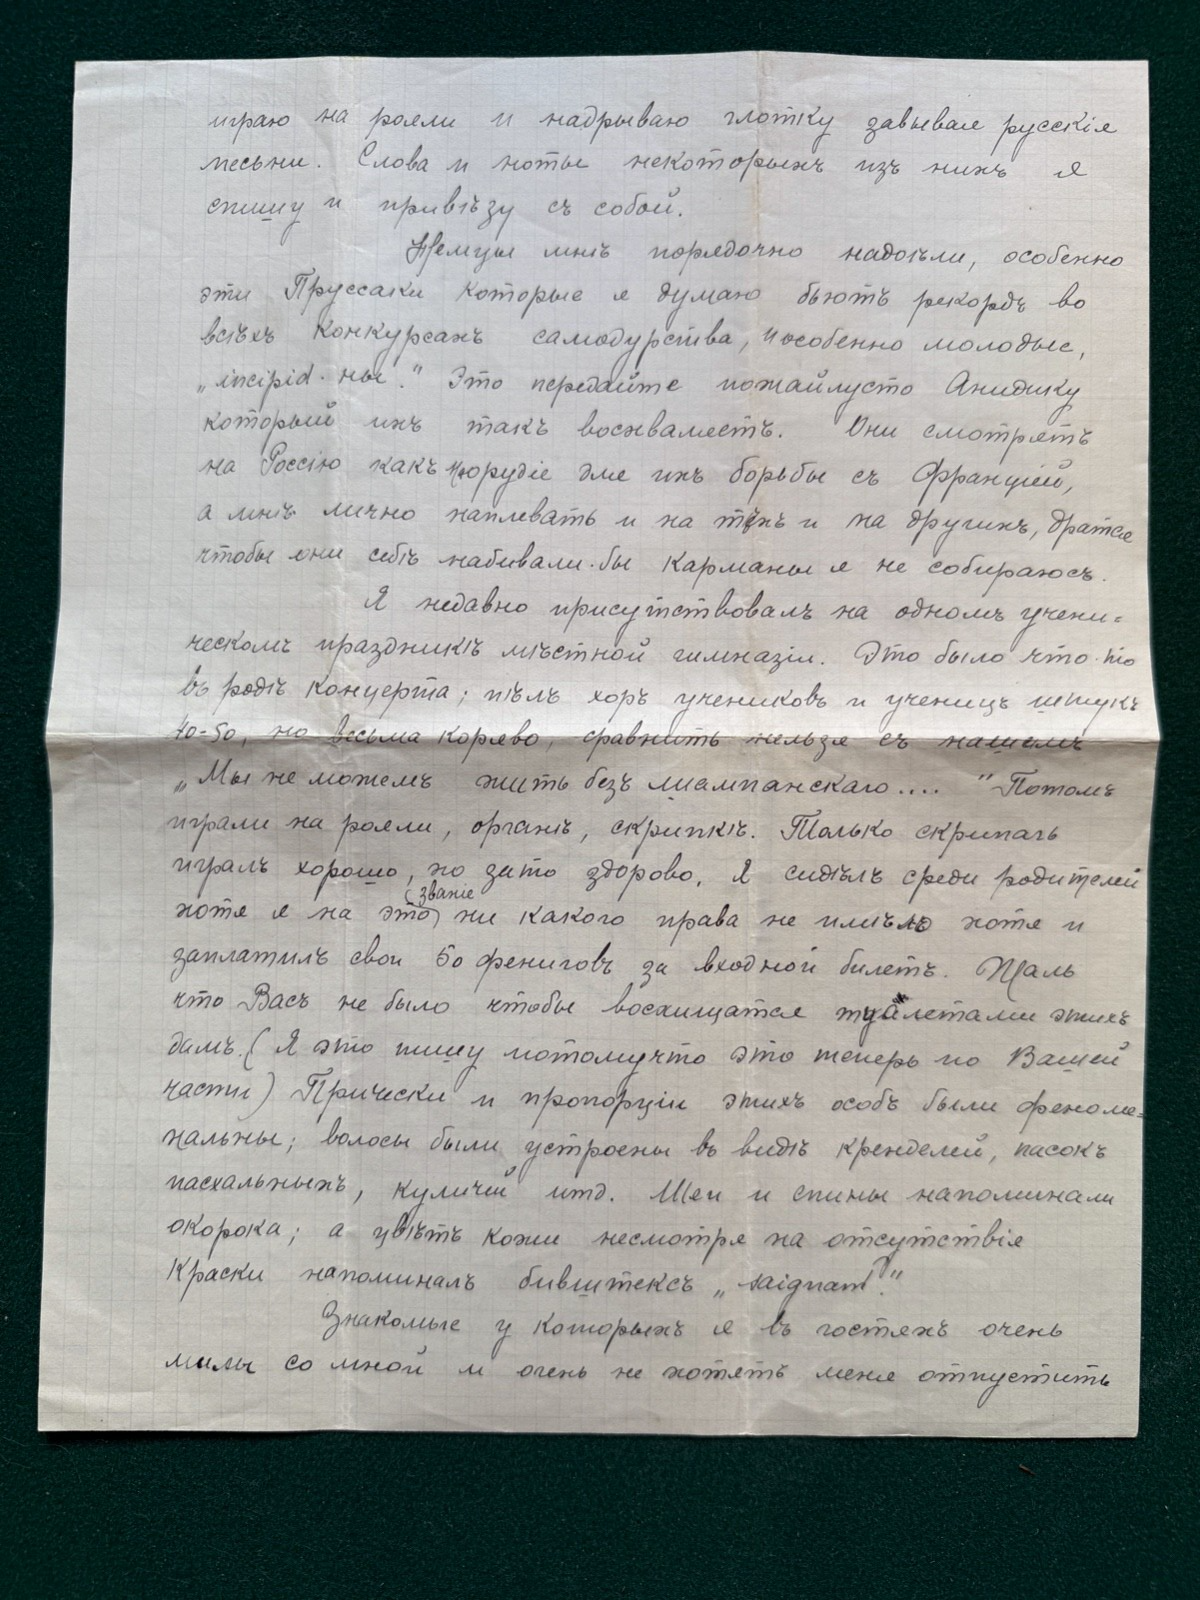 играю на рояли и надрываю глотку завывая русскія
песьни. Слова и ноты некоторыхъ изъ нихъ я
спишу и привѣзу съ собой.
Немцы мнѣ порядочно надоѣли, особенно
эти Пруссаки которые я думаю бьютъ рекордъ во
всѣхъ конкурсахъ самодурства, и особенно молодые,
„incipid-ны." Это передайте пожайлусто
который ихъ такъ восхваляетъ. Они смотрятъ
на Россію какъ на орудіе для ихъ борьбы съ Францией,
а мнѣ лично наплевать и на тѣхъ и на другихъ, дратся
чтобы они себѣ набивали-бы карманы я не собираюсь.
Я недавно присутствовалъ на одномъ учени=
ческомъ праздникѣ мѣстной гимназіи. Это было что-то
въ родѣ концерта; пѣлъ хоръ учениковъ и ученицъ штукъ
40-50, но весьма коряво, сравнить нельзя съ нашемъ
„Мы не можемъ жить безъ шампанскаго...." Потомъ
играли на рояли, органѣ, скрипкѣ. Только скрипачъ
игралъ хорошо, но зато здорово. Я сидѣлъ среди родителей
хотя я на это (званіе) ни какого права не имѣю хотя и
заплатилъ свои 50 фениговъ за входной билетъ. Жаль
что Васъ не было чтобы восхищатся туалетами этихъ
дамъ. (Я это пишу потомучто это теперь по Вашей
части) Прически и пропорціи этихъ особъ были феноме=
нальны; волосы были устроены въ видѣ кренделей, пасокъ
пасхальныхъ, куличей итд. Шеи и спины напоминали
окорока; а цвѣтъ кожи несмотря на отсутствія
краски напоминалъ бивштексъ „saignant."
Знакомые у которыхъ я въ гостяхъ очень
милы со мной и очень не хотятъ меня отпустить